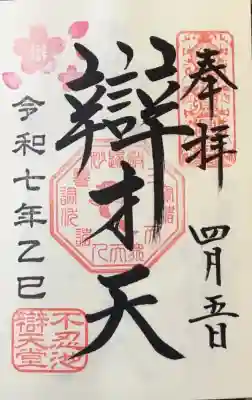 奉拝
四月五日
辯才天
令和七年乙巳
不忍池
辯天堂